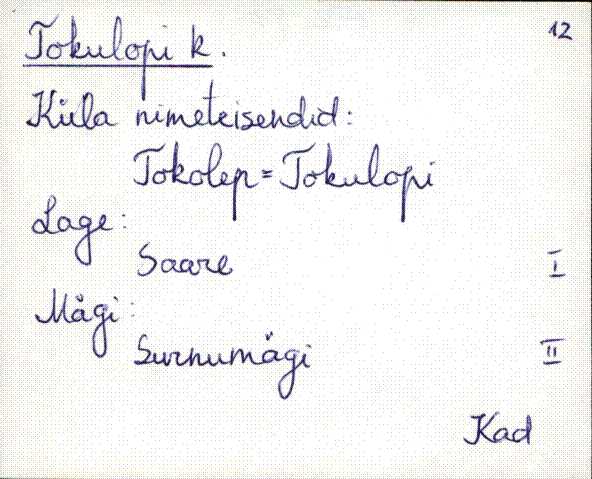 12
Tokulopi k.
Küla nimeteisendid:
Tokolep = Tokulopi
Lage:
Saare I
Mägi:
Surnumägi II
Kad